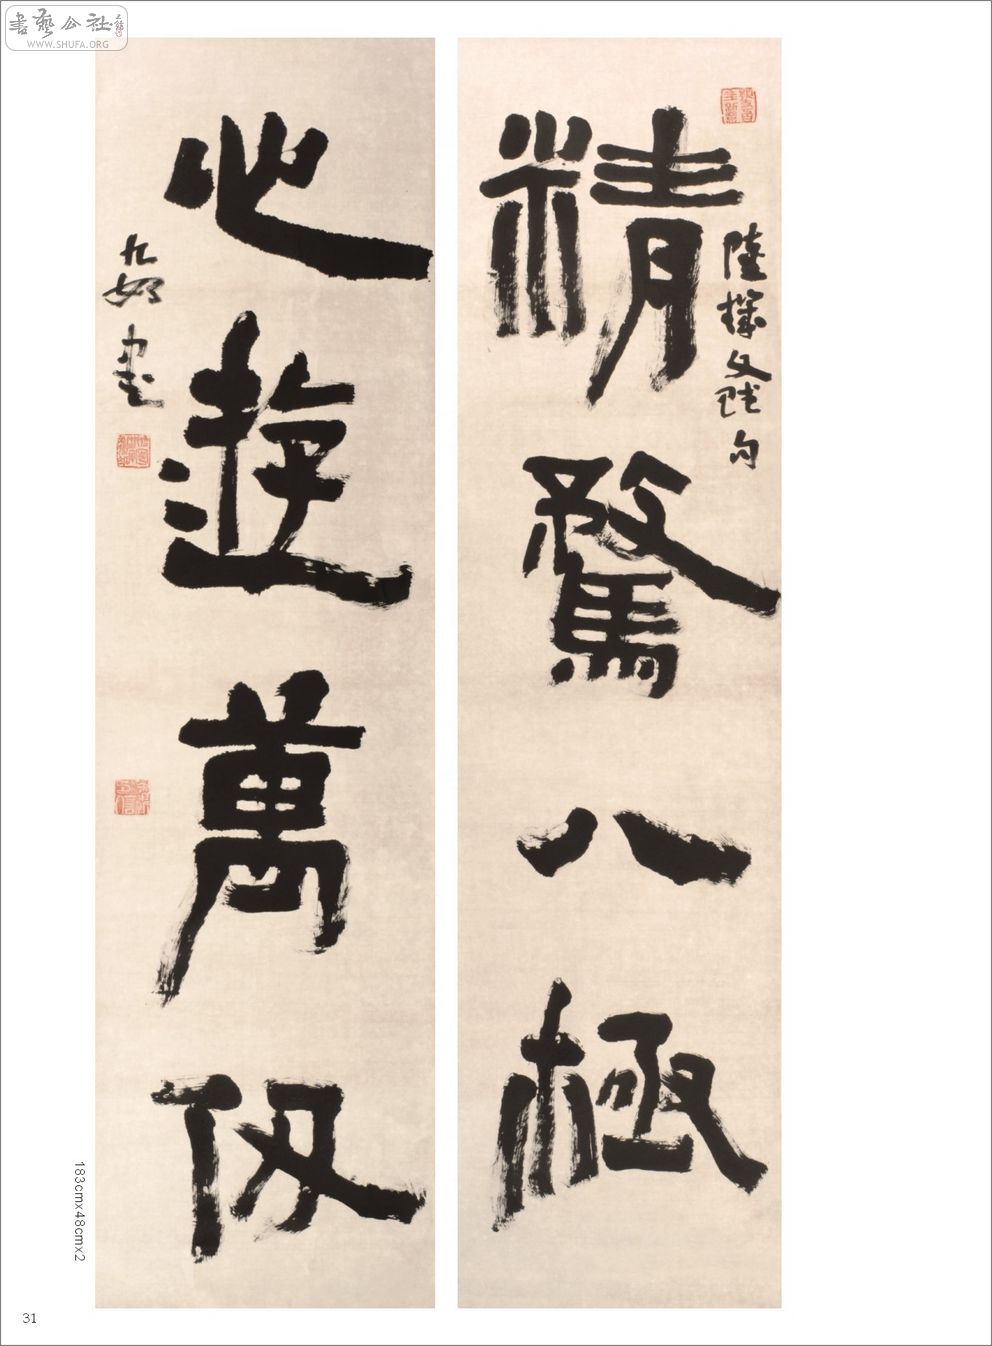 書藝公社
WWW.SHUFA.ORG
陸機文賦句
精騖八極
心遊萬仞
九如書
183cmx48cmx2
31